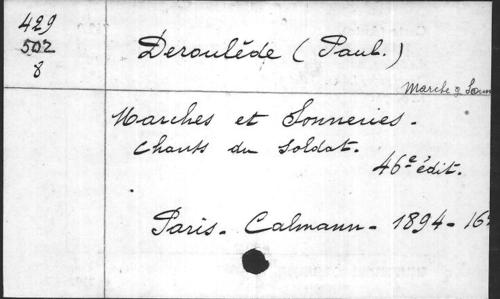 429
502
8
Deroulède (Paul.)
Marche &
Marches et Sonneries.
Chants du Soldat.
46e édit.
Paris. Calmann. 1894. 16